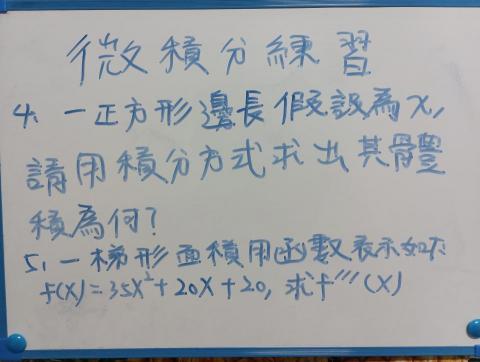 微積分練習
4、一正方形邊長假設為x,
請用積分方式求出其體
積為何?
5、一梯形面積用函數表示如下
f(x)=35x²+20x+20, 求f'''(x)